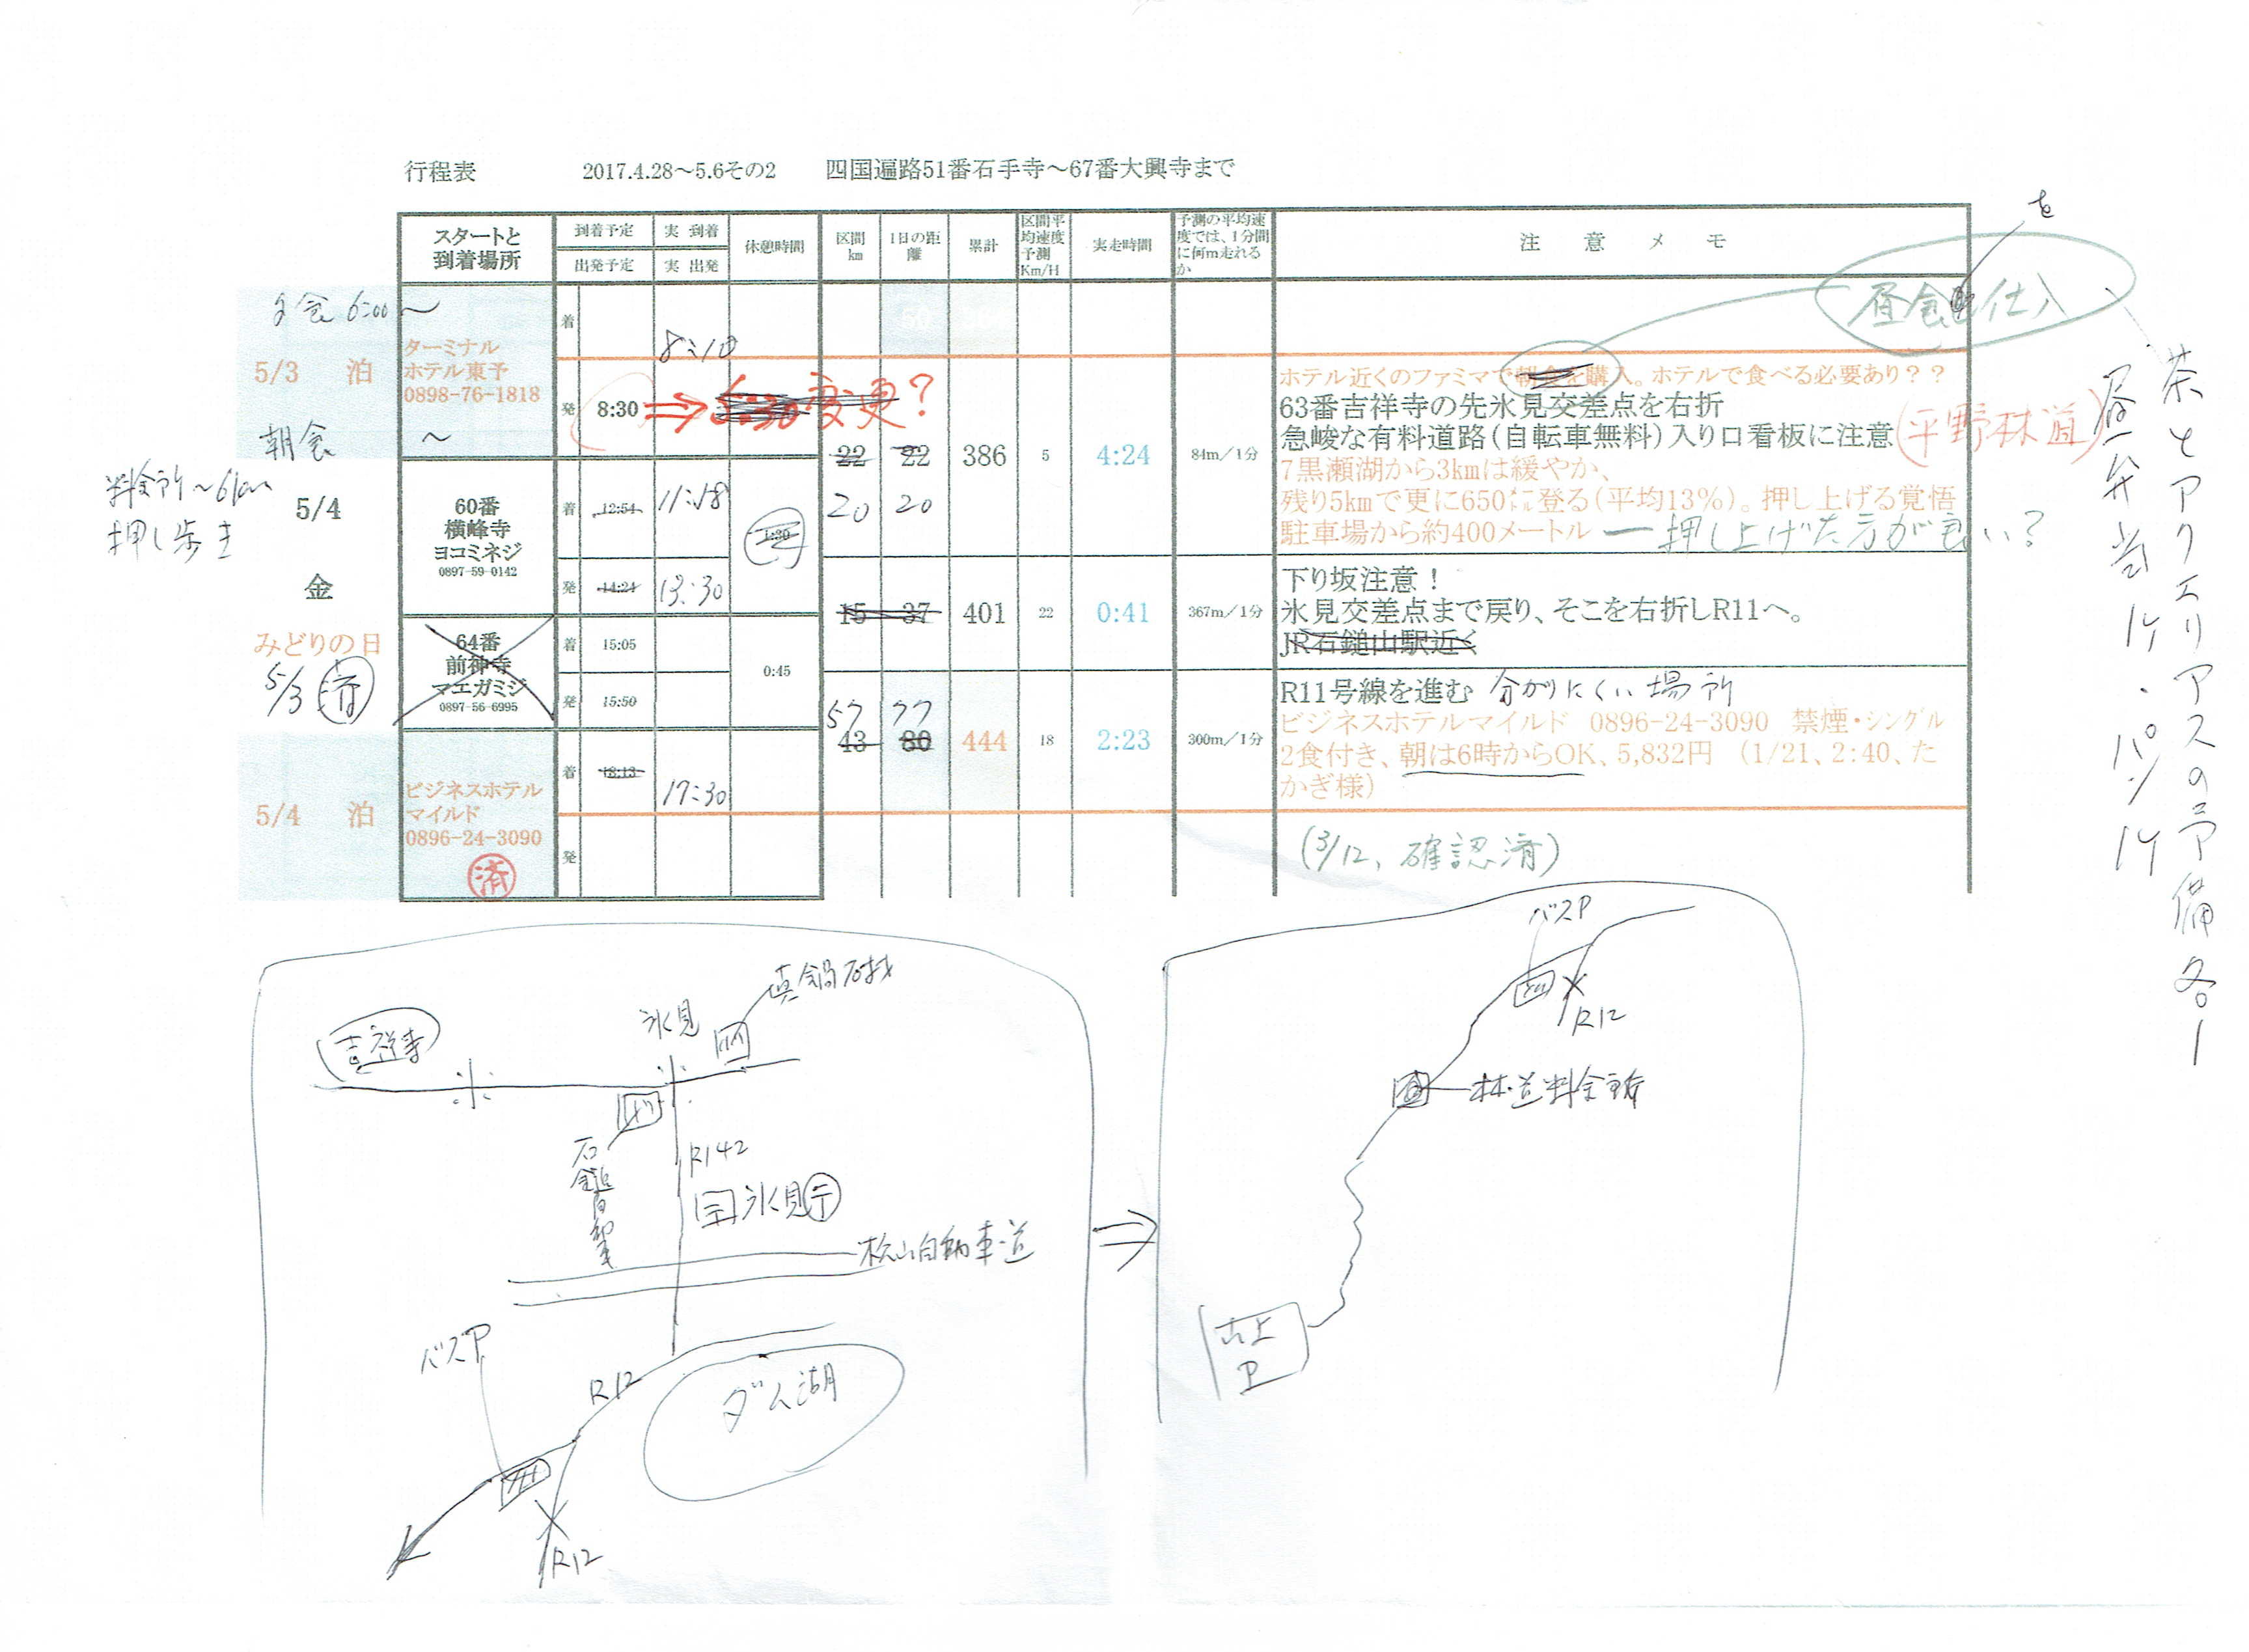 行程表 2017.4.28～5.6その2 四国遍路51番石手寺～67番大興寺まで
を
スタートと
到着場所
到着予定
出発予定
実 到着
実 出発
休憩時間
区間
km
1日の距
離
累計
区間平
均速度
予測
Km/H
実走時間
予測の平均速
度では、1分間
に何m走れる
か
注 意 メ モ
昼食 仕入
夕食 6:00～
5/3 泊
朝食 ～
ターミナル
ホテル東予
0898-76-1818
着
8:10
発
8:30 ⇒ 変更?
22 22 386 5 4:24 84m/1分
20 20
ホテル近くのファミマで朝食を購入。ホテルで食べる必要あり??
63番吉祥寺の先氷見交差点を右折
急峻な有料道路(自転車無料)入り口看板に注意(平野林道)
7黒瀬湖から3kmは緩やか、
残り5kmで更に650㍍登る(平均13%)。押し上げる覚悟
駐車場から約400メートル ー押し上げた方が良い?
料金所～6km
押し歩き
5/4
金
みどりの日
5/3 済
60番
横峰寺
ヨコミネジ
0897-59-0142
着 12:54 11:18
1:30
発 14:24 13:30
15 37 401 22 0:41 367m/1分
下り坂注意!
氷見交差点まで戻り、そこを右折しR11へ。
JR石鎚山駅近く
64番
前神寺
マエガミジ
0897-56-6995
着 15:05
0:45
発 15:50
57 77
43 80 444 18 2:23 300m/1分
R11号線を進む 分かりにくい場所
ビジネスホテルマイルド 0896-24-3090 禁煙・シングル
2食付き、朝は6時からOK、5,832円 (1/21、2:40、た
かぎ様)
5/4 泊
ビジネスホテル
マイルド
0896-24-3090
済
着 18:13
17:30
発
(3/12、確認済)
茶とアクエリアスの予備各1
昼 弁当1ケ・パン1ケ
吉祥寺
氷見
真鍋石材
石鎚
R142
氷見〒
松山自動車道
バスP
R12
ダム湖
R12
バスP
R12
林道料金所
P